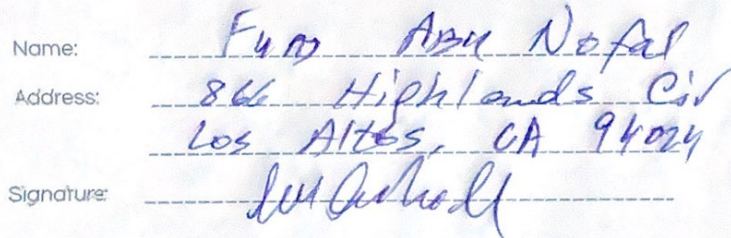 Name: Fuad Abu Nofal
Address: 866 Highlands Cir
Los Altos, CA 94024
Signature: